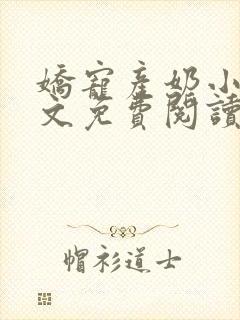 嬌寵產奶小
文免費閱讀
帽衫道士